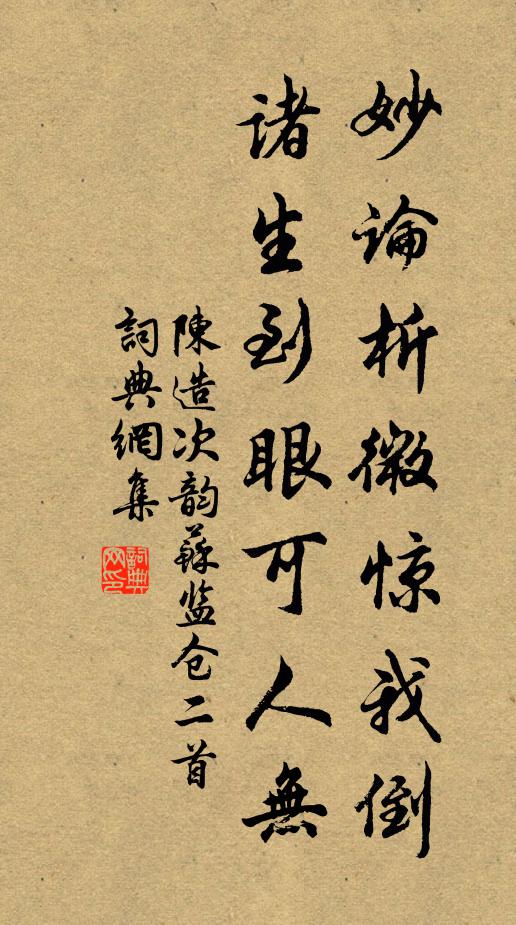 妙論析微惊我倒
諸生到眼可人無
陳造次韵蘇监仓二首
詞典網集
詞典网印